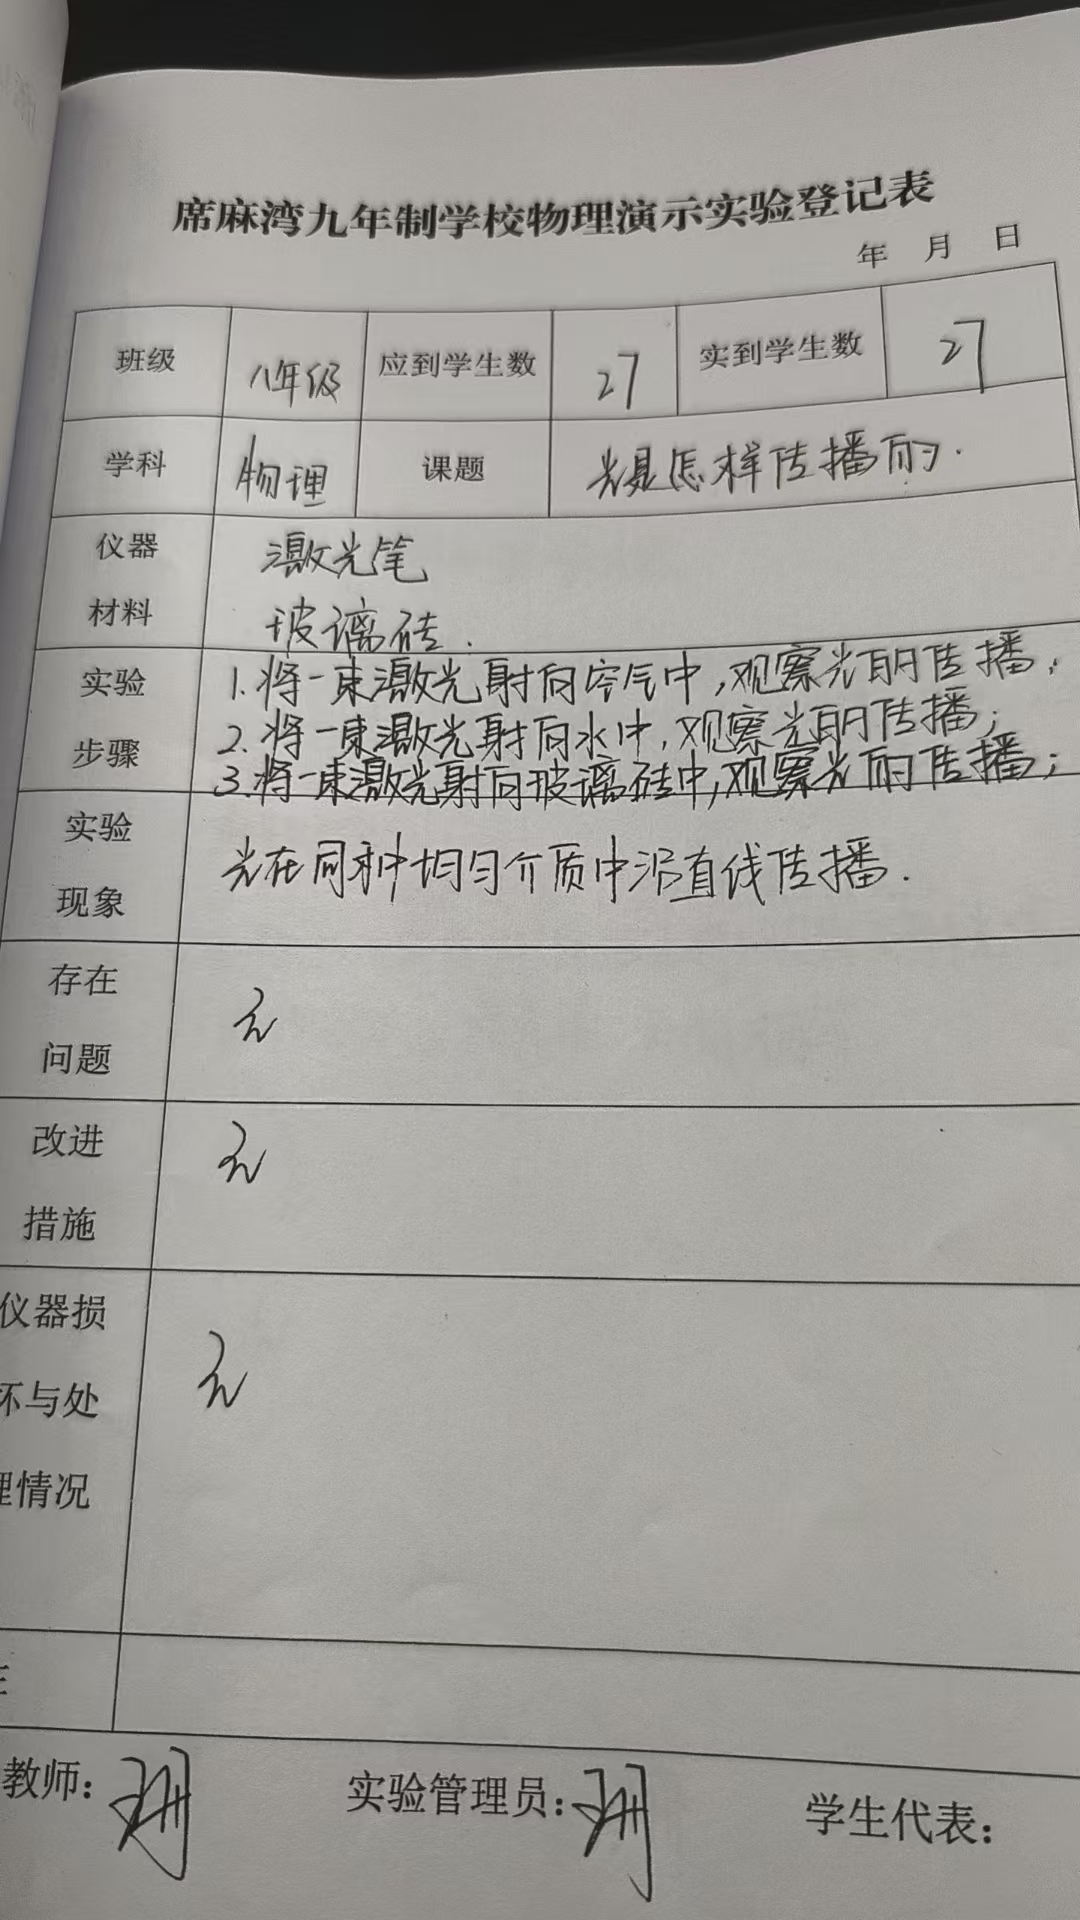 席麻湾九年制学校物理演示实验登记表
年 月 日
班级 八年级 应到学生数 27 实到学生数 27
学科 物理 课题 光是怎样传播的.
仪器 激光笔
材料 玻璃砖.
实验 1.将一束激光射向空气中,观察光的传播;
步骤 2.将一束激光射向水中,观察光的传播;
3.将一束激光射向玻璃砖中,观察光的传播;
实验
现象 光在同种均匀介质中沿直线传播.
存在
问题 无
改进
措施 无
仪器损
坏与处 无
理情况
教师: 实验管理员: 学生代表: